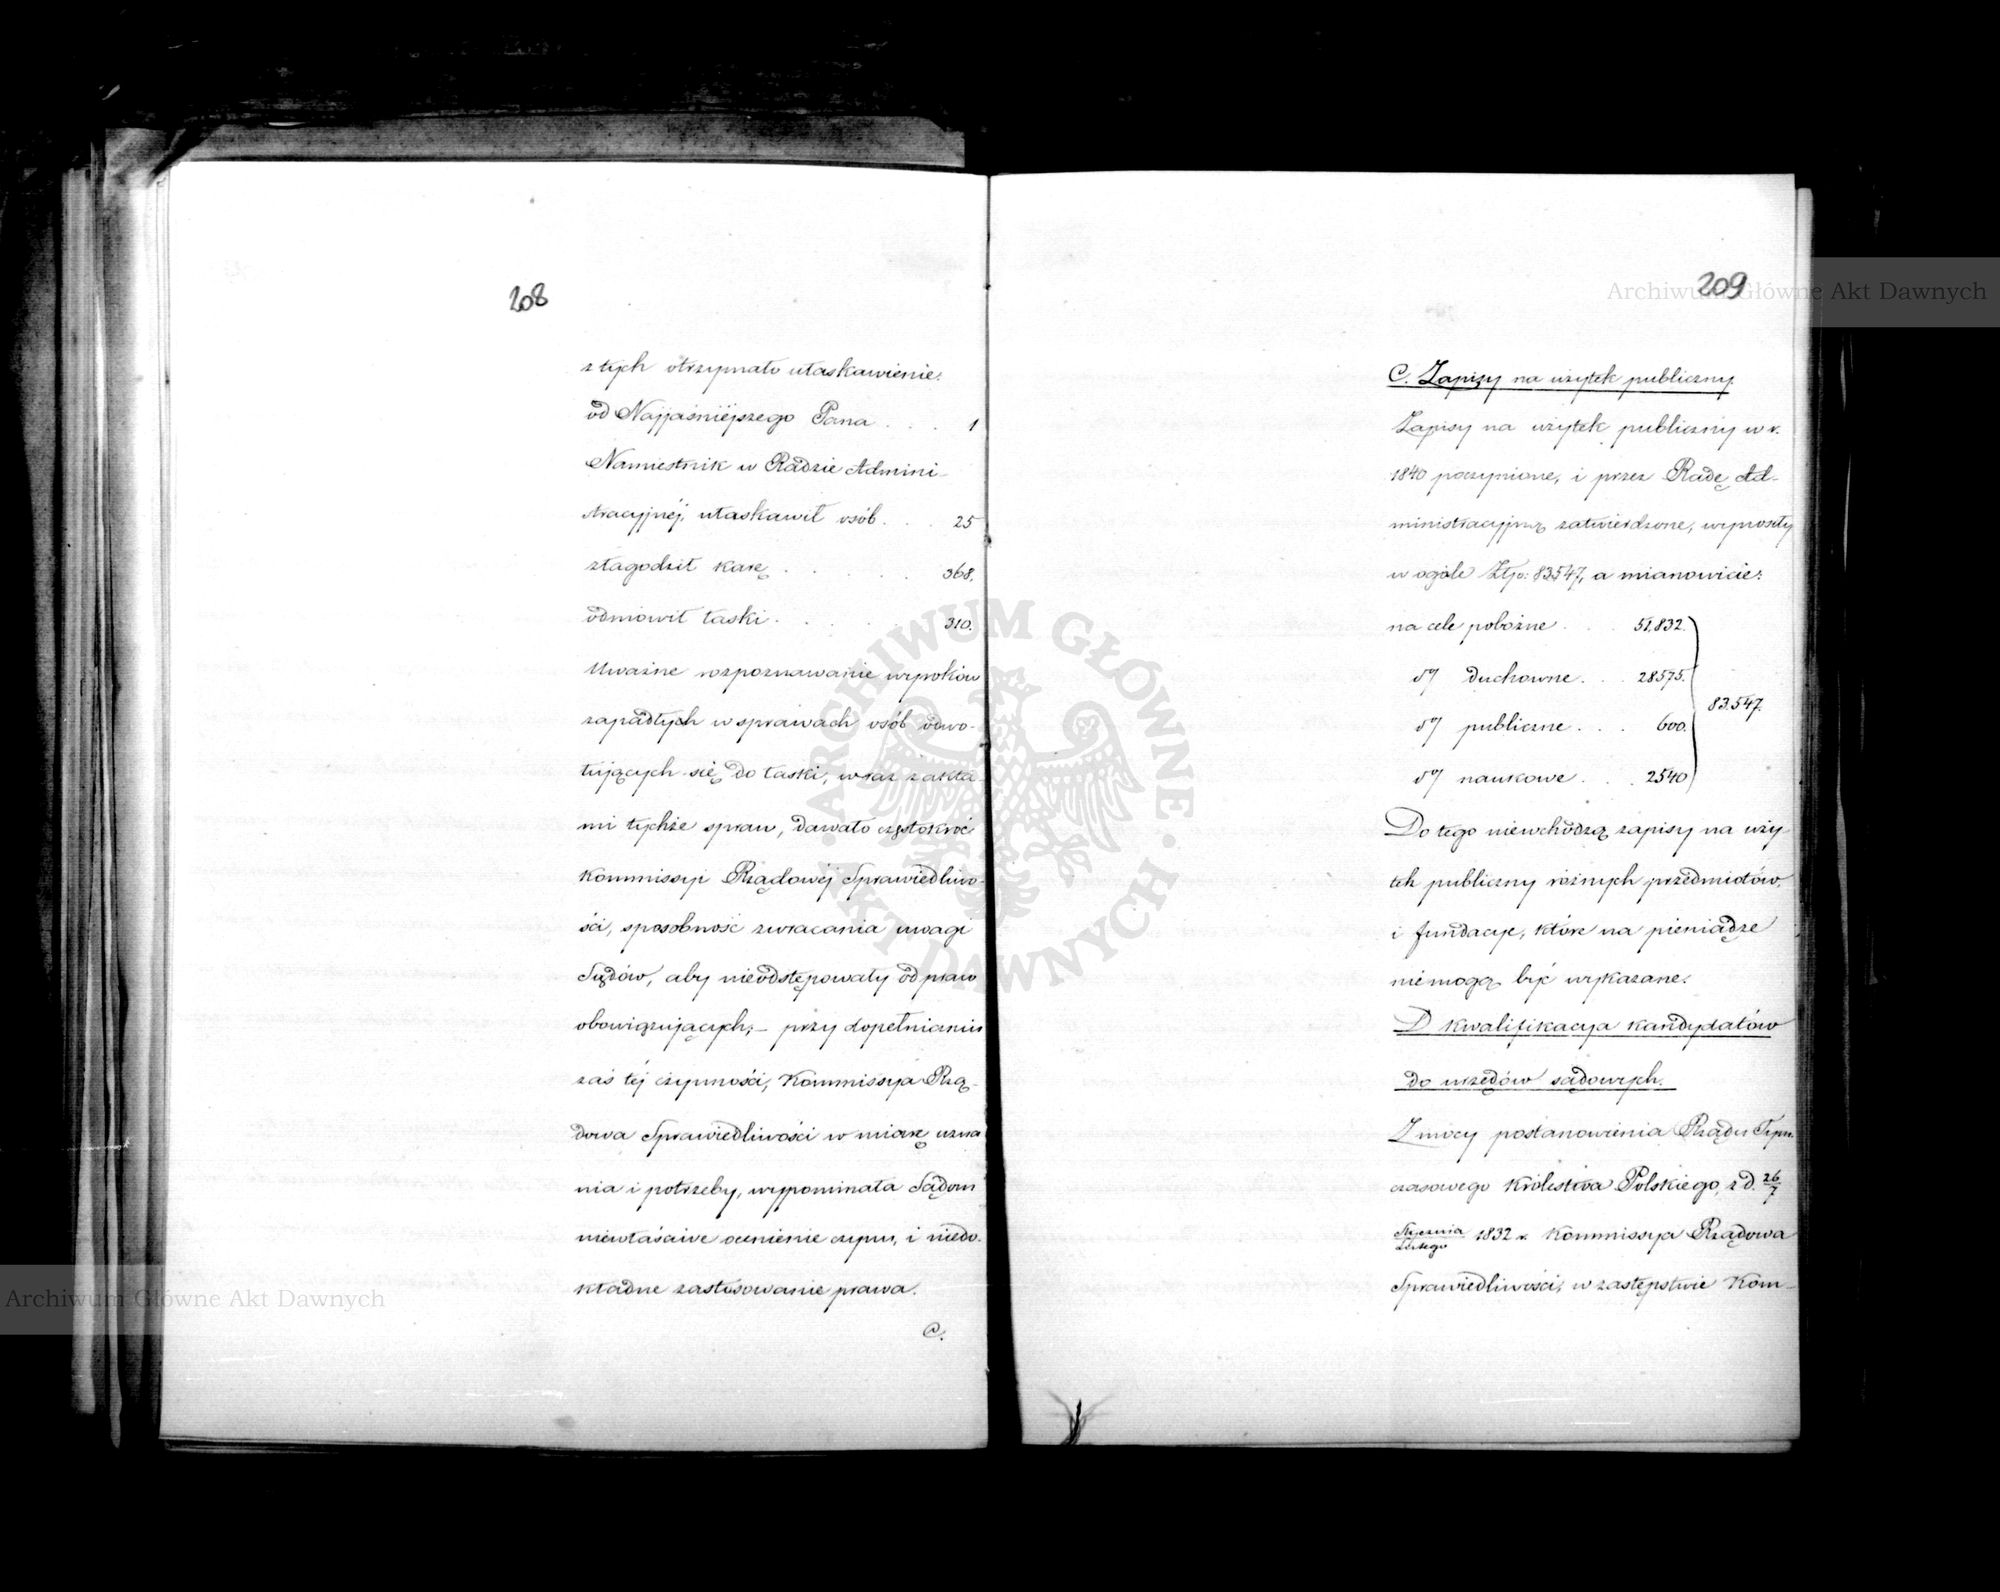 208
z tych otrzymało ułaskawienie:
od Najjaśniéjszego Pana . . . 1
Namiestnik w Radzie Admini-
stracyjnéj, ułaskawił osób . . . 25
złagodził karę . . . . . 368.
odmówił łaski . . . . . 310.
Uważne rozpoznawanie wyroków
zapadłych w sprawach osób odwo-
łujących się do łaski, wraz z akta-
mi tychże spraw, dawało częstokroć
Kommissyi Rządowéj Sprawiedliwo-
ści, sposobność zwracania uwagi
Sądów, aby nieodstępowały od praw
obowiązujących; – przy dopełnianiu
zaś téj czynności, Kommissya Rzą-
dowa Sprawiedliwości w miarę uzna
nia i potrzeby, wypominała Sądom
niewłaściwe ocenienie czynu, i niedo-
kładne zastosowanie prawa.
C.
209
C. Zapisy na użytek publiczny.
Zapisy na użytek publiczny w r.
1840 poczynione, i przez Radę Ad-
ministracyjną zatwierdzone, wynosiły
w ogóle Złp: 83.547, a mianowicie:
na cele pobożne . . . 51,832.
d° duchowne . . . 28575.
83.547.
d° publiczne . . . 600.
d° naukowe . . . 2540
Do tego niewchodzą zapisy na uży-
tek publiczny różnych przedmiotów,
i fundacye, które na pieniądze
niemogą być wykazane.
D kwalifikacya kandydatów
do urzędów sądowych.
Z mocy postanowienia Rządu Tym-
czasowego Królestwa Polskiego, z d. 26/7
Stycznia/Lutego 1832 r. Kommissya Rządowa
Sprawiedliwości, w zastępstwie Kom-
Archiwum Główne Akt Dawnych
Archiwum Główne Akt Dawnych
ARCHIWUM GŁÓWNE AKT DAWNYCH